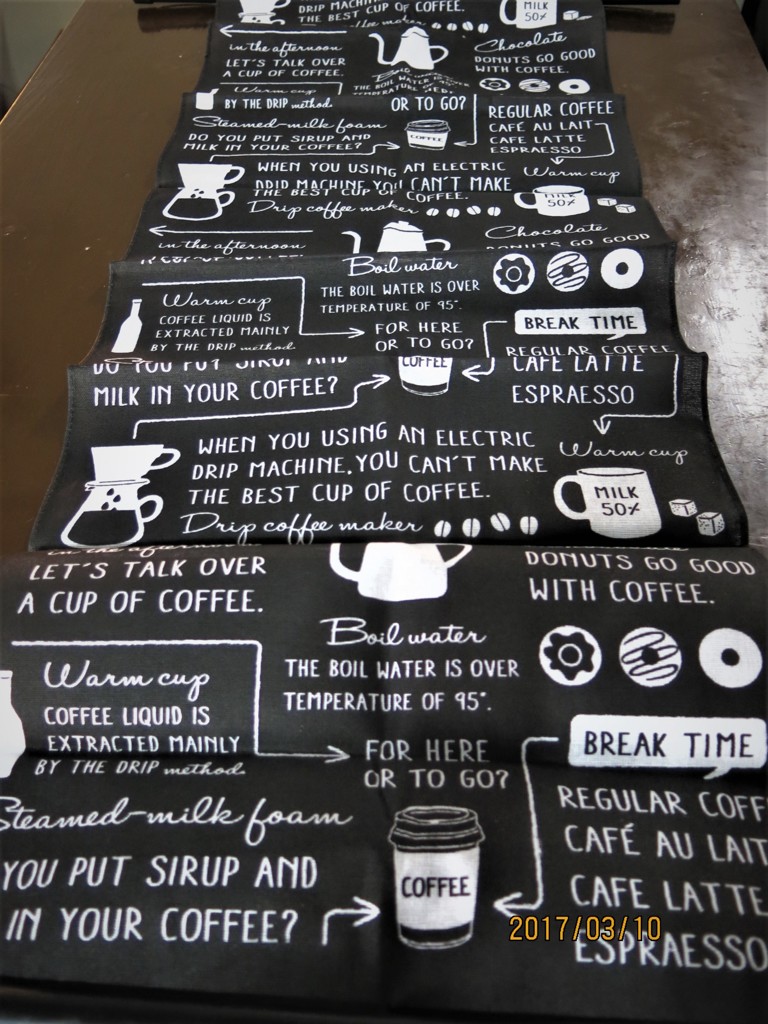 DRIP MACHINE
THE BEST CUP OF COFFEE.
MILK
50%
in the afternoon
LET'S TALK OVER
A CUP OF COFFEE.
Boil
THE BOIL WATER
Chocolate
DONUTS GO GOOD
WITH COFFEE.
Warm cup
BY THE DRIP method.
OR TO GO?
Steamed-milk foam
DO YOU PUT SIRUP AND
MILK IN YOUR COFFEE?
COFFEE
REGULAR COFFEE
CAFÉ AU LAIT
CAFE LATTE
ESPRAESSO
WHEN YOU USING AN ELECTRIC
DRIP MACHINE, YOU CAN'T MAKE
THE BEST CUP OF
Drip coffee maker
Warm cup
MILK
50%
in the afternoon
Chocolate
DONUTS GO GOOD
Boil water
THE BOIL WATER IS OVER
TEMPERATURE OF 95°.
Warm cup
COFFEE LIQUID IS
EXTRACTED MAINLY
BY THE DRIP method.
FOR HERE
OR TO GO?
BREAK TIME
REGULAR COFFEE
DO YOU PUT SIRUP AND
MILK IN YOUR COFFEE?
COFFEE
CAFE LATTE
ESPRAESSO
WHEN YOU USING AN ELECTRIC
DRIP MACHINE, YOU CAN'T MAKE
THE BEST CUP OF COFFEE.
Drip coffee maker
Warm cup
MILK
50%
in the afternoon
LET'S TALK OVER
A CUP OF COFFEE.
DONUTS GO GOOD
WITH COFFEE.
Boil water
THE BOIL WATER IS OVER
TEMPERATURE OF 95°.
Warm cup
COFFEE LIQUID IS
EXTRACTED MAINLY
BY THE DRIP method.
FOR HERE
OR TO GO?
BREAK TIME
Steamed-milk foam
YOU PUT SIRUP AND
IN YOUR COFFEE?
COFFEE
REGULAR COFF
CAFÉ AU LAIT
CAFE LATTE
ESPRAESSO
2017/03/10